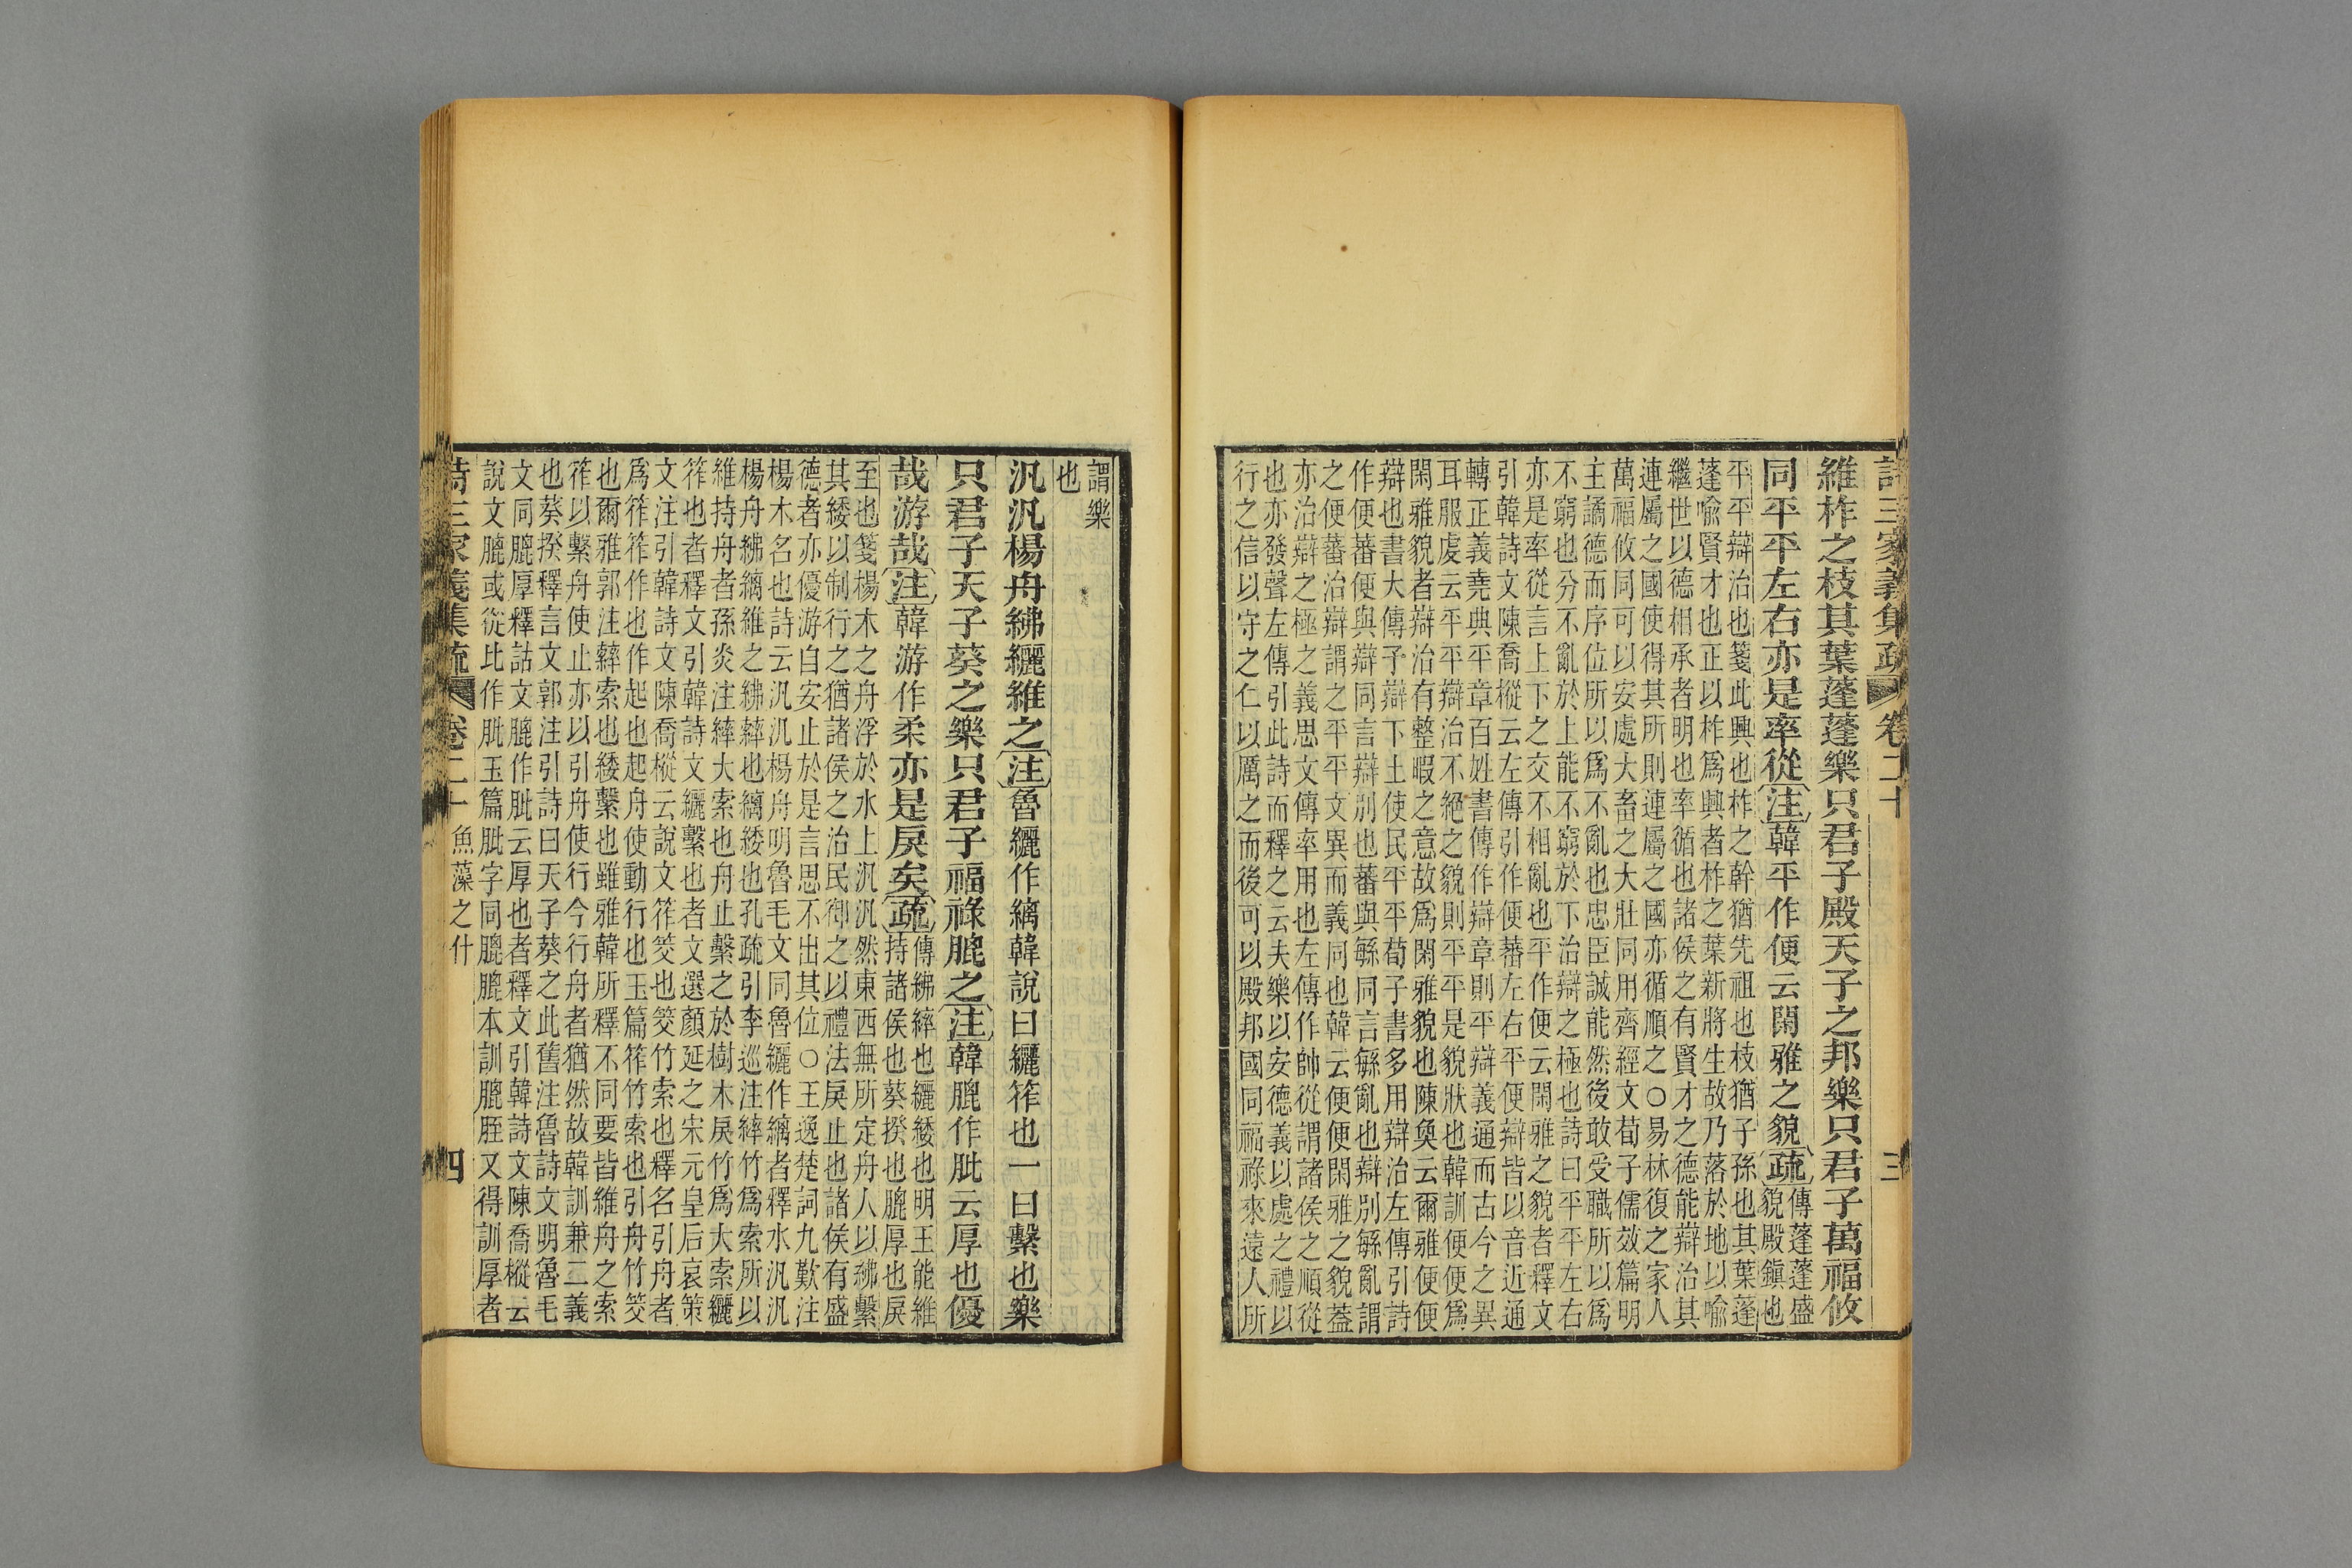 詩三家義集疏 卷二十 三
維柞之枝其葉蓬蓬樂只君子殿天子之邦樂只君子萬福攸
同平平左右亦是率從注韓平作便云閑雅之貌疏傳蓬蓬盛
貌殿鎭也
平平辯治也箋此興也柞之幹猶先祖也枝猶子孫也其葉蓬
蓬喻賢才也正以柞爲興者柞之葉新將生故乃落於地以喻
繼世以德相承者明也率循也諸侯之有賢才之德能辯治其
連屬之國使得其所則連屬之國亦循順之○易林復之家人
萬福攸同可以安處大畜之大壯同用齊經文荀子儒效篇明
主譎德而序位所以爲不亂也忠臣誠能然後敢受職所以爲
不窮也分不亂於上能不窮於下治辯之極也詩曰平平左右
亦是率從言上下之交不相亂也平作便云閑雅之貌者釋文
引韓詩文陳喬樅云左傳引作便蕃左右平便辯皆以音近通
轉正義堯典平章百姓書傳作辯章則平辯義通而古今之異
耳服虔云平平辯治不絕之貌則平平是貌狀也韓訓便便爲
閑雅貌者辯治有整暇之意故爲閑雅貌也陳奐云爾雅便便
辯也書大傳予辯下土使民平平荀子書多用辯治左傳引詩
作便蕃便與辯同言辯別也蕃與緐同言緐亂也辯別緐亂謂
之便蕃治辯謂之平平文異而義同也韓云便便閑雅之貌葢
亦治辯之極之義思文傳率用也左傳作帥從謂諸侯之順從
也亦發聲左傳引此詩而釋之云夫樂以安德義以處之禮以
行之信以守之仁以厲之而後可以殿邦國同福祿來遠人所
謂樂
也
汎汎楊舟紼纚維之注魯纚作縭韓說曰纚筰也一曰繫也樂
只君子天子葵之樂只君子福祿膍之注韓膍作肶云厚也優
哉游哉注韓游作柔亦是戾矣疏傳紼繂也纚緌也明王能維
持諸侯也葵揆也膍厚也戾
至也箋楊木之舟浮於水上汎汎然東西無所定舟人以紼繫
其緌以制行之猶諸侯之治民御之以禮法戾止也諸侯有盛
德者亦優游自安止於是言思不出其位○王逸楚詞九歎注
楊木名也詩云汎汎楊舟明魯毛文同魯纚作縭者釋水汎汎
楊舟紼縭維之紼繂也縭緌也孔疏引李巡注繂竹爲索所以
維持舟者孫炎注繂大索也舟止繫之於樹木戾竹爲大索纚
筰也者釋文引韓詩文纚繫也者文選顏延之宋元皇后哀策
文注引韓詩文陳喬樅云說文筰筊也筊竹索也釋名引舟者
爲筰筰作也作起也起舟使動行也玉篇筰竹索也引舟竹筊
也爾雅郭注繂索也緌繫也雖雅韓所釋不同要皆維舟之索
筰以繫舟使止亦以引舟使行今行舟者猶然故韓訓兼二義
也葵揆釋言文郭注引詩曰天子葵之此舊注魯詩文明魯毛
文同膍厚釋詁文膍作肶云厚也者釋文引韓詩文陳喬樅云
說文膍或從比作肶玉篇肶字同膍膍本訓膍胵又得訓厚者
詩三家義集疏 卷二十 魚藻之什 四